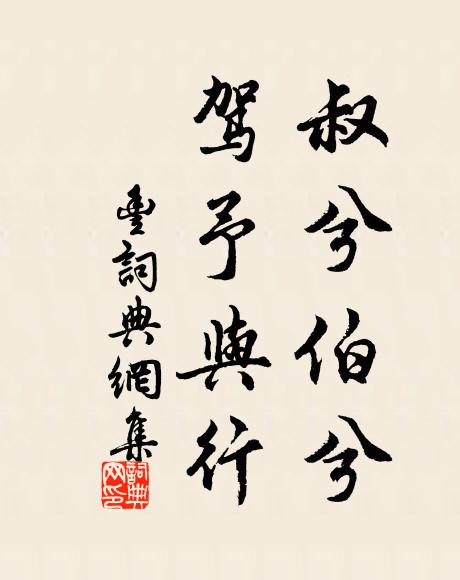 叔兮伯兮
駕予與行
雪詞典網集
詞典网印